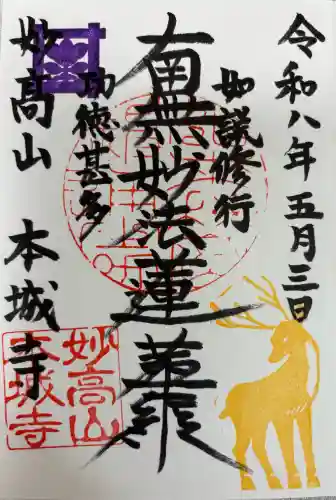 令和八年五月三日
如説修行
南無妙法蓮華経
功徳甚多
妙高山 本城寺
妙高山
本城寺